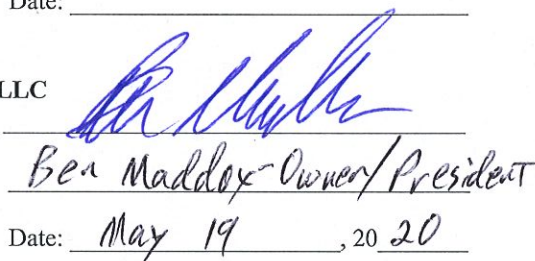 Date:
LLC
Ben Maddox - Owner/President
Date: May 19, 20 20